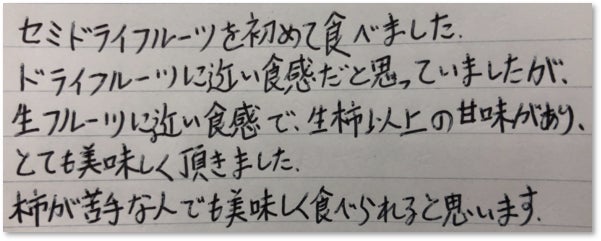 セミドライフルーツを初めて食べました.
ドライフルーツに近い食感だと思っていましたが、
生フルーツに近い食感で、生柿以上の甘味があり、
とても美味しく頂きました.
柿が苦手な人でも美味しく食べられると思います.